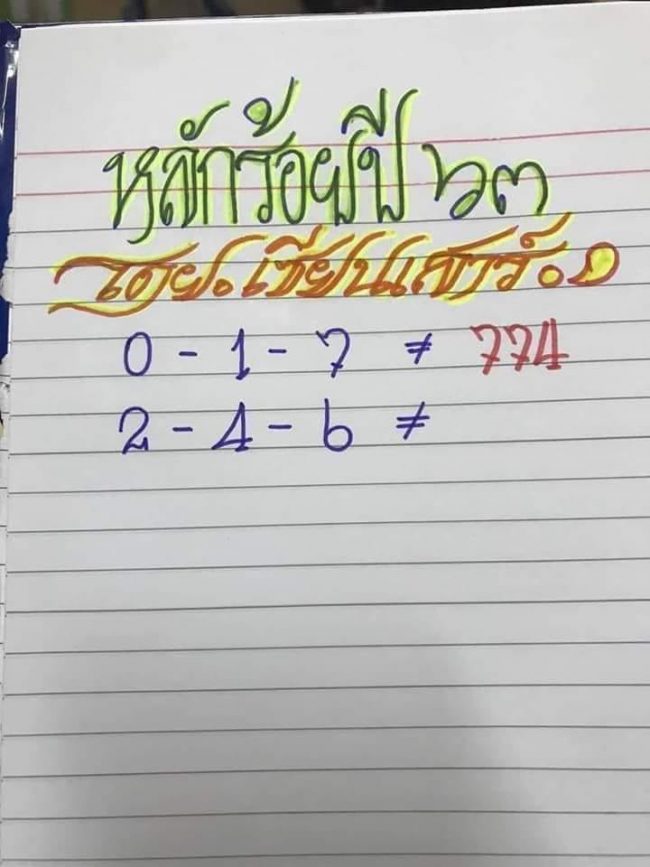 หลักร้อยปี ๖๓
โดย.เซียนเสาร์.๑
0 - 1 - 7 ≠ 774
2 - 4 - 6 ≠